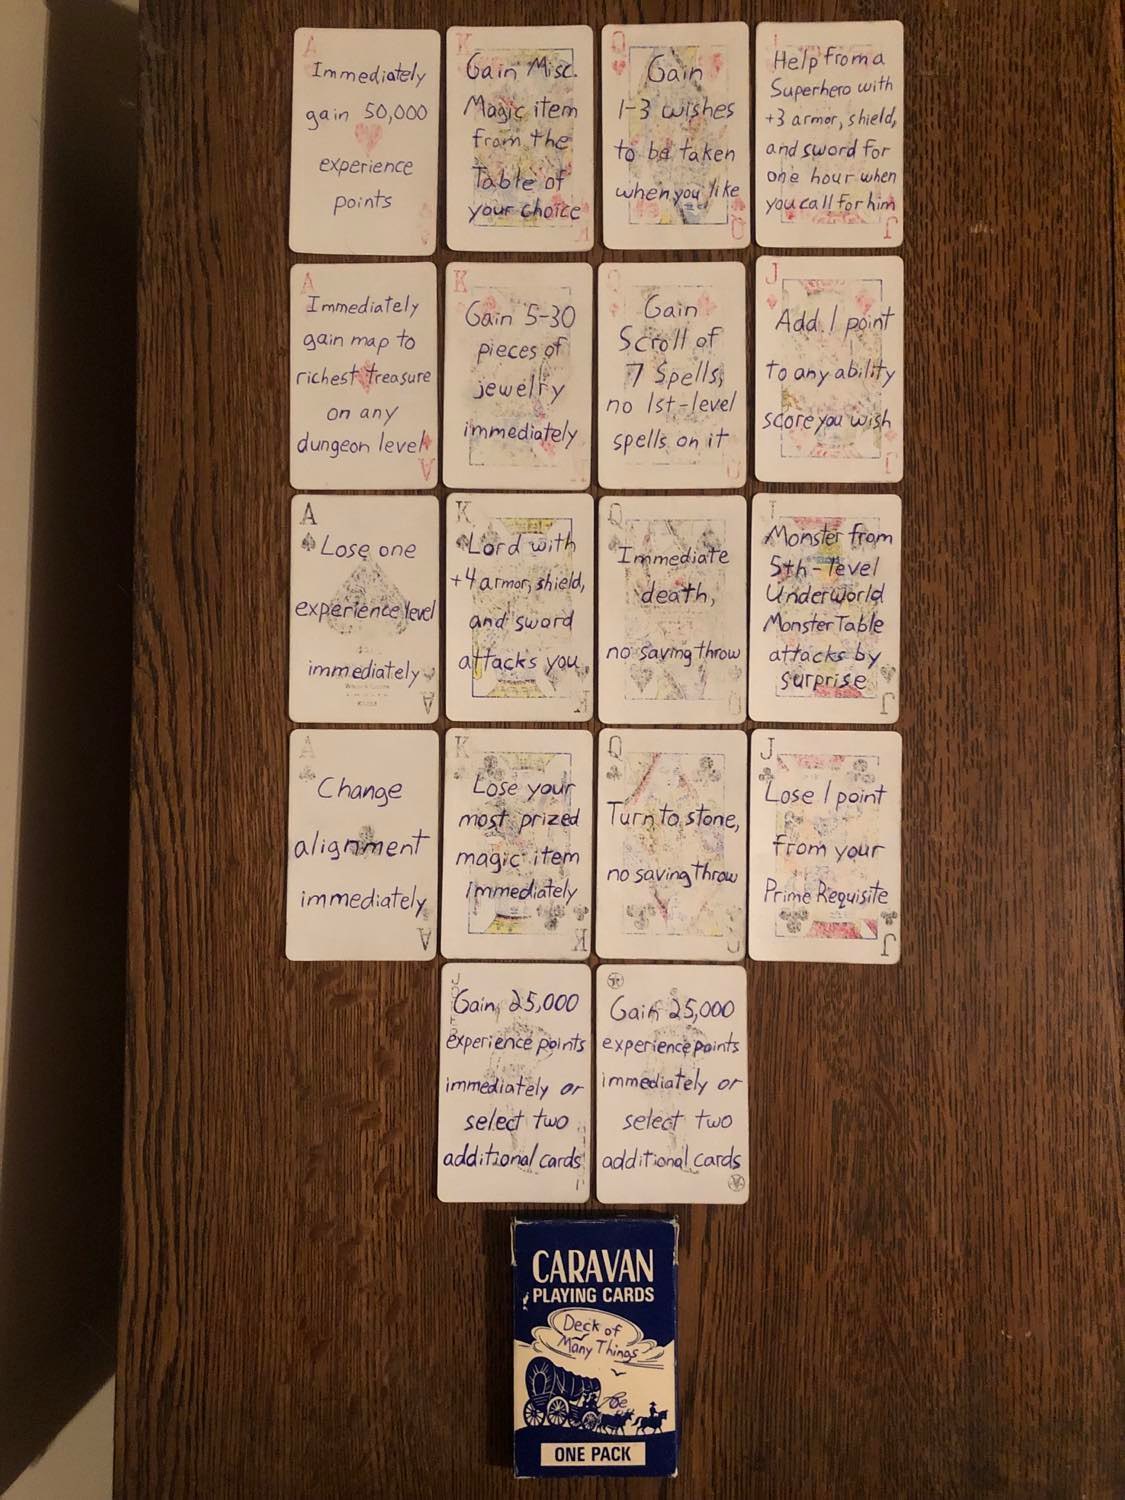 A
Immediately
gain 50,000
experience
points
A
K
Gain Misc.
Magic item
from the
Table of
your choice
K
Q
Gain
1-3 wishes
to be taken
when you like
Q
J
Help from a
Superhero with
+3 armor, shield,
and sword for
one hour when
you call for him
J
A
Immediately
gain map to
richest treasure
on any
dungeon level
A
K
Gain 5-30
pieces of
jewelry
immediately
K
Q
Gain
Scroll of
7 Spells,
no 1st-level
spells on it
Q
J
Add 1 point
to any ability
score you wish
J
A
Lose one
experience level
immediately
A
K
Lord with
+4 armor, shield,
and sword
attacks you
K
Q
Immediate
death,
no saving throw
Q
J
Monster from
5th-level
Underworld
Monster Table
attacks by
surprise
J
A
Change
alignment
immediately
A
K
Lose your
most prized
magic item
immediately
K
Q
Turn to stone,
no saving throw
Q
J
Lose 1 point
from your
Prime Requisite
J
Gain 25,000
experience points
immediately or
select two
additional cards
Gain 25,000
experience points
immediately or
select two
additional cards
CARAVAN
PLAYING CARDS
Deck of
Many Things
ONE PACK